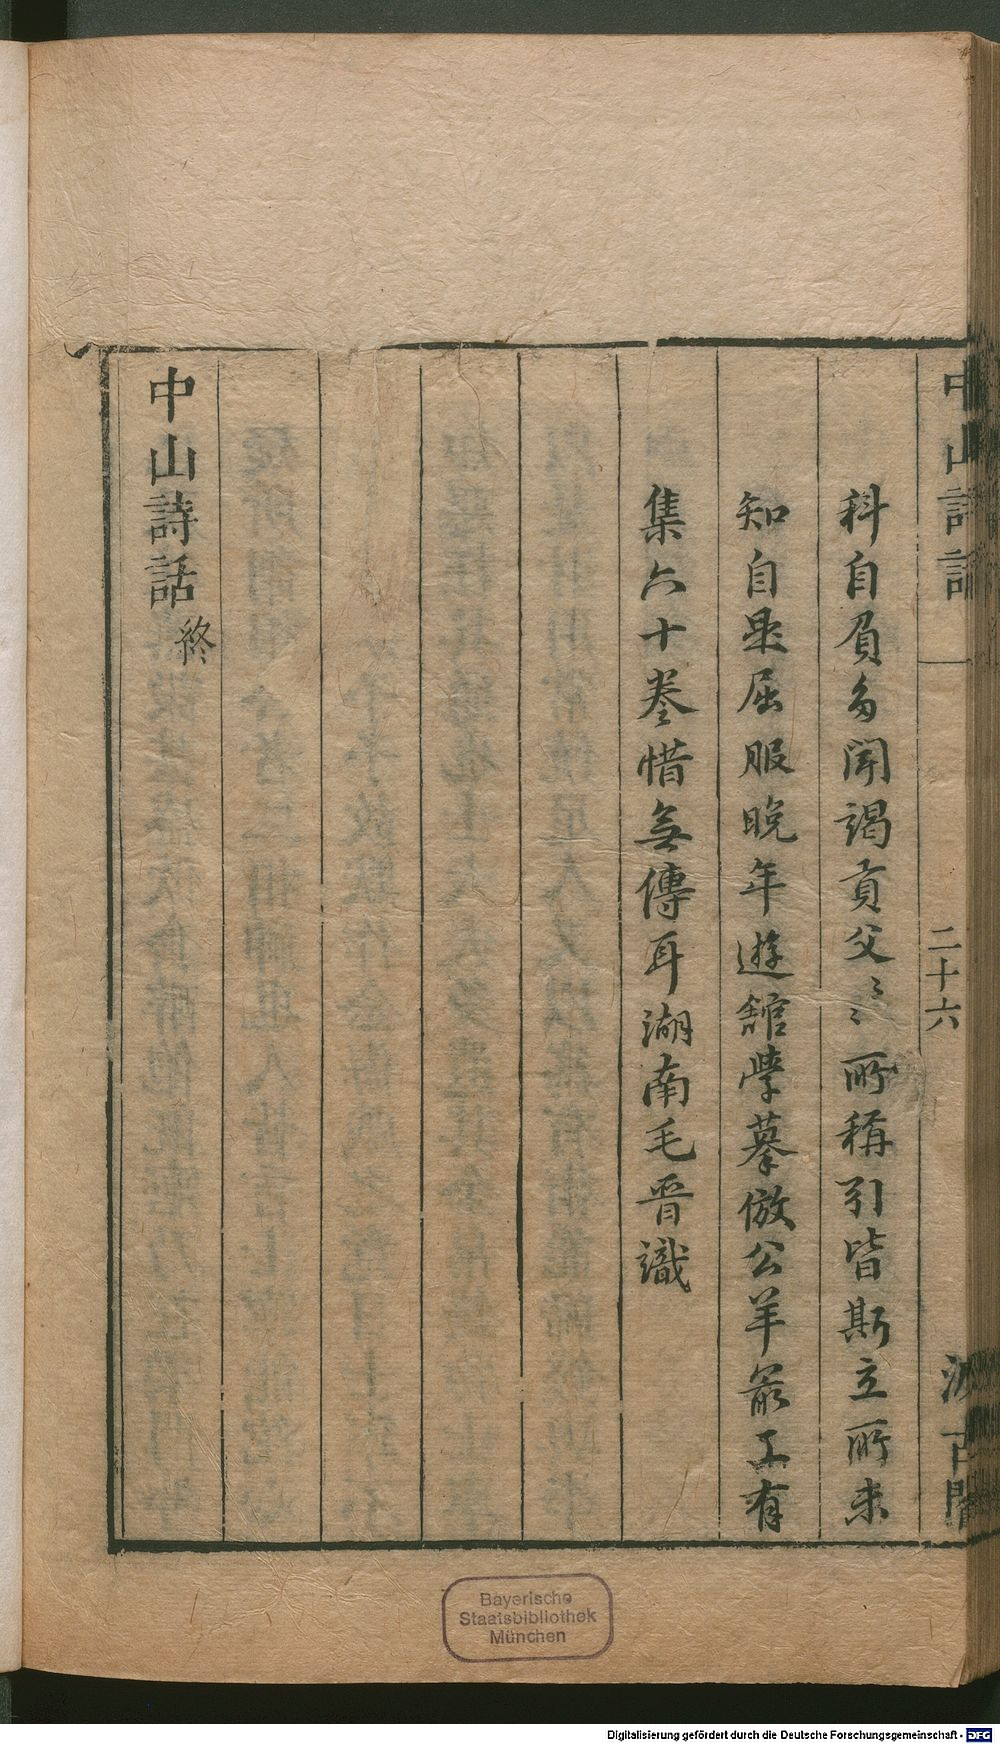 中山詩話
二十六
汲古閣
科自負多聞謁貢父〻所稱引皆斯立所未
知自是屈服晚年遊舘學摹倣公羊㝡工有
集六十卷惜無傳耳湖南毛晉識
中山詩話終
Bayerische
Staatsbibliothek
München
Digitalisierung gefördert durch die Deutsche Forschungsgemeinschaft - DFG